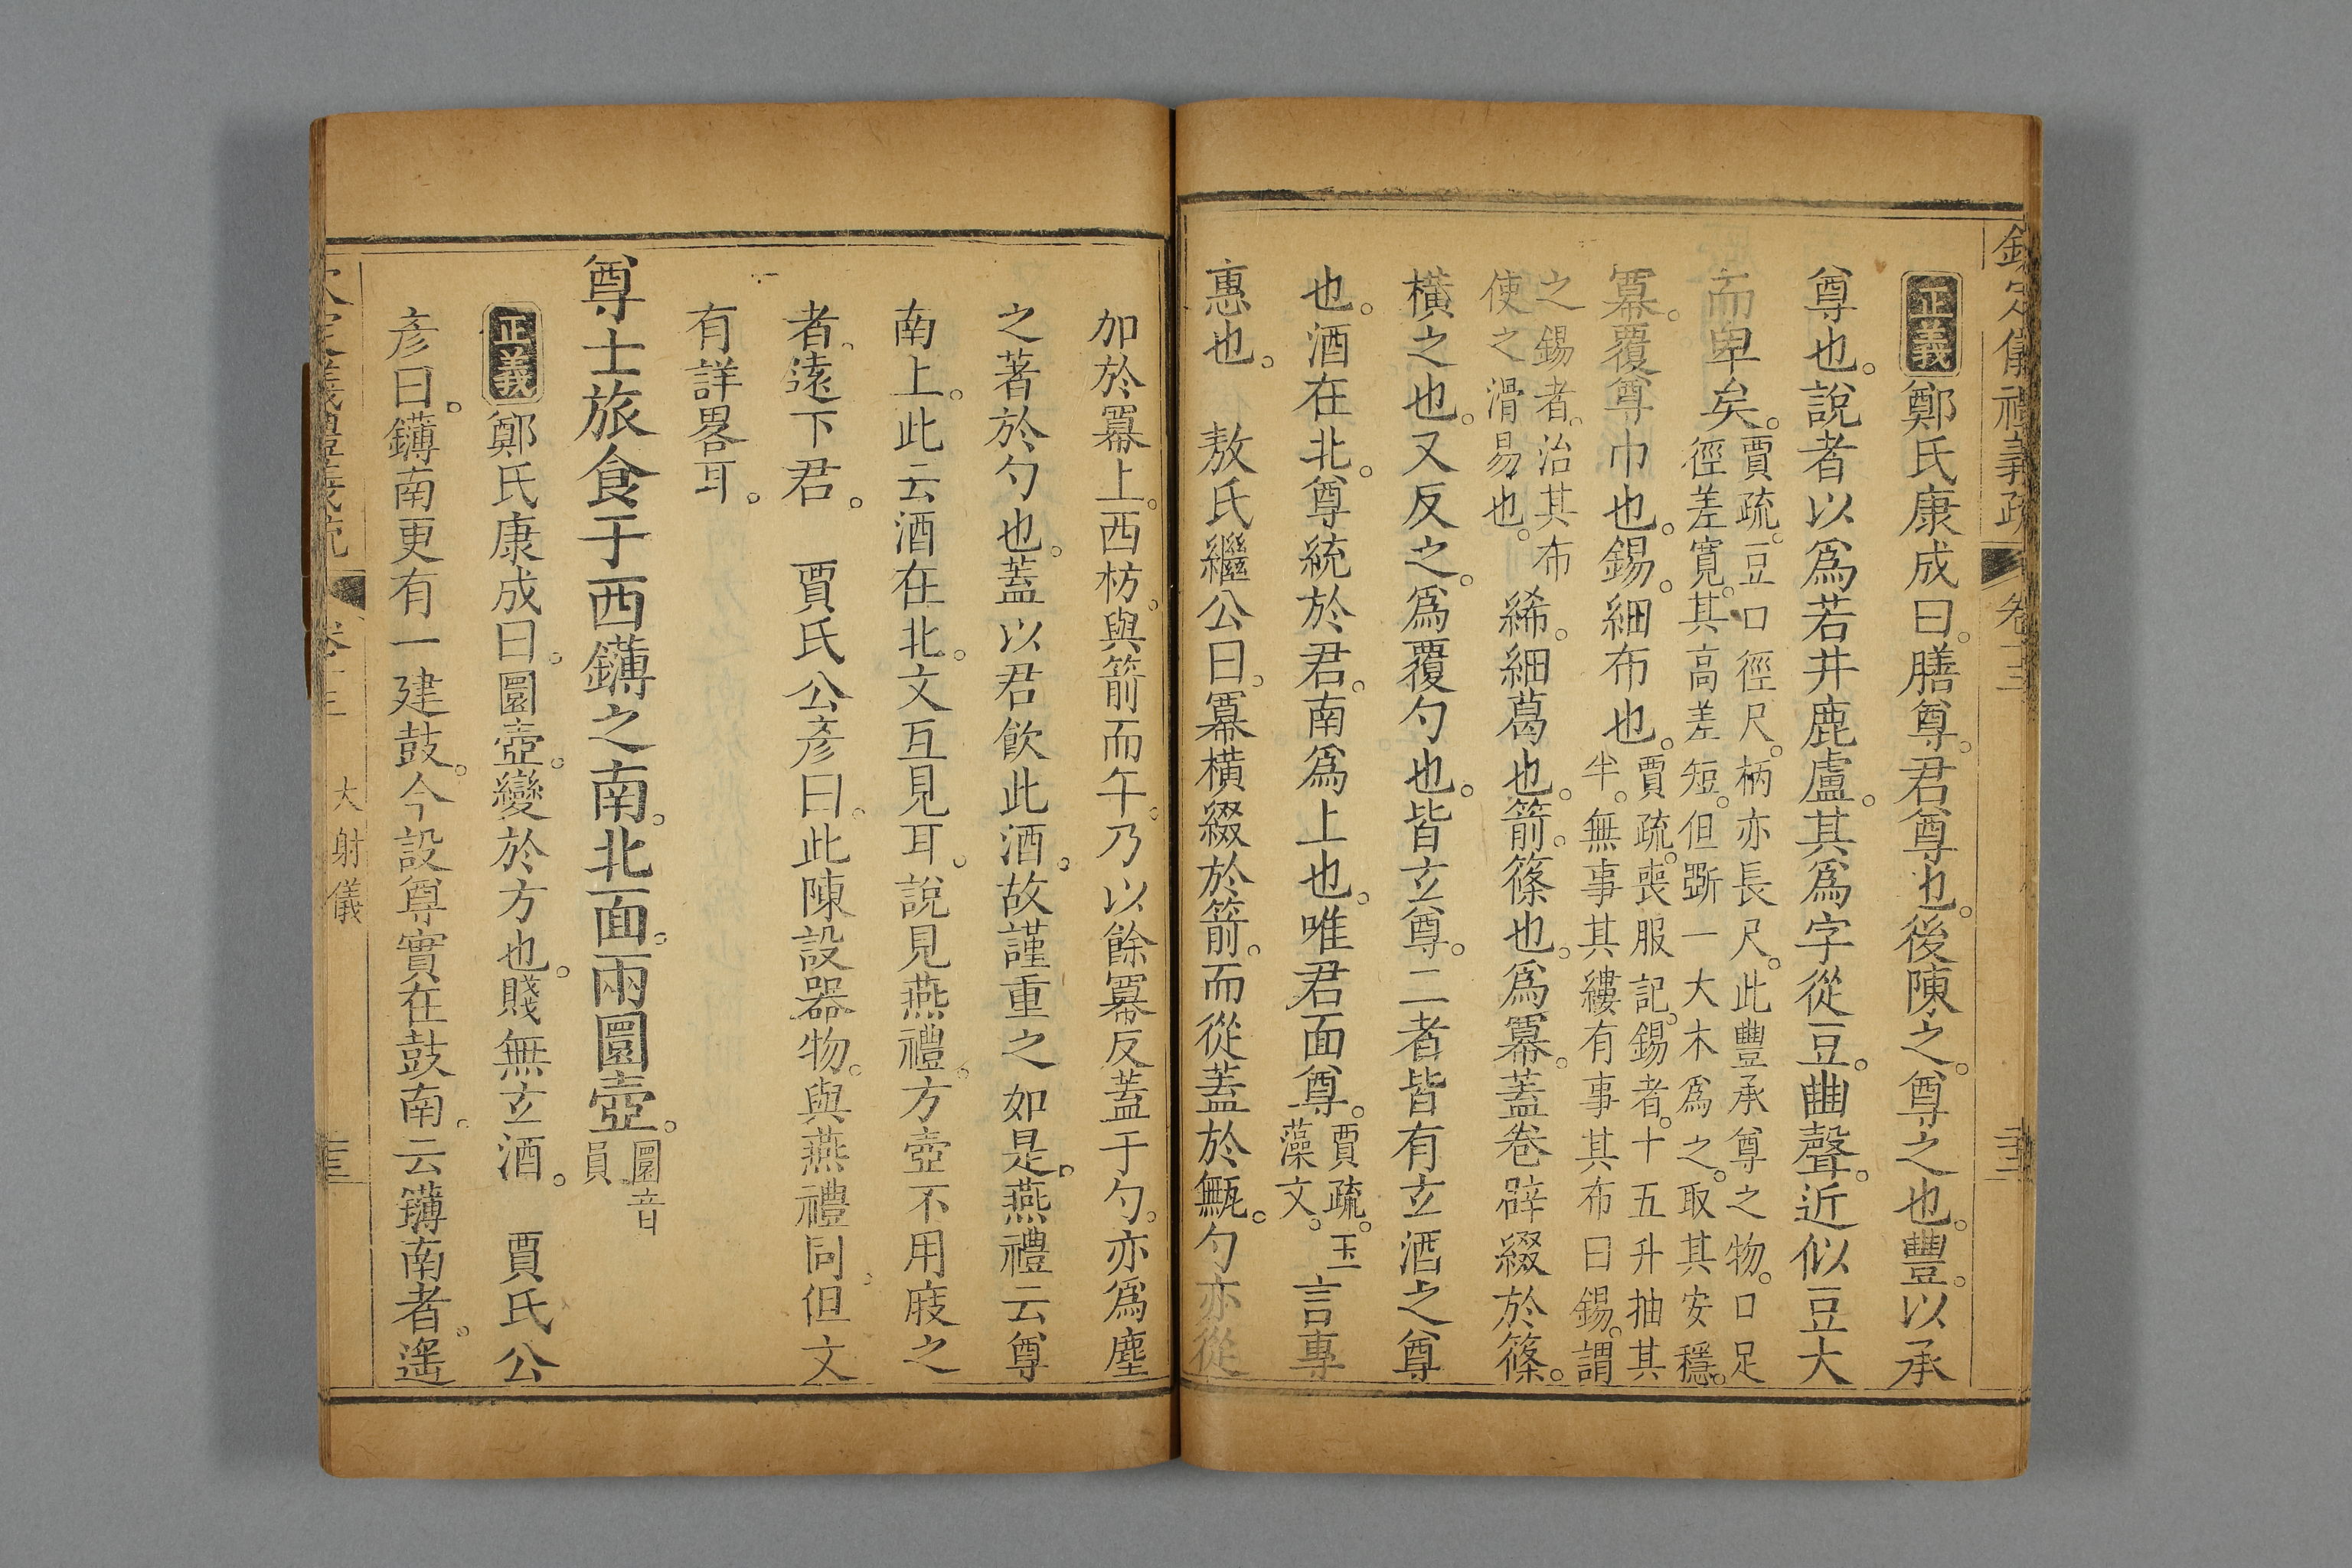 欽定儀禮義疏 卷十三 三十三
正義鄭氏康成曰。膳尊。君尊也。後陳之。尊之也。豐。以承
尊也。說者以爲若井鹿盧。其爲字從豆。曲聲。近似豆大
而卑矣。賈疏。豆口徑尺。柄亦長尺。此豐承尊之物。口足
徑差寬。其高差短。但斲一大木爲之。取其安穩。
冪。覆尊巾也。錫。細布也。賈疏。喪服記。錫者。十五升抽其
半。無事其縷有事其布曰錫。謂
之錫者。治其布
使之滑易也。絺。細葛也。箭。篠也。爲冪。蓋卷辟綴於篠。
橫之也。又反之。爲覆勺也。皆玄尊。二者皆有玄酒之尊
也。酒在北。尊統於君。南爲上也。唯君面尊。賈疏。玉
藻文。言專
惠也。 敖氏繼公曰。冪橫綴於箭。而從蓋於甒。勺亦從
加於冪上。西枋。與箭而午。乃以餘冪反蓋于勺。亦爲塵
之著於勺也。蓋以君飮此酒。故謹重之如是。燕禮云尊
南上。此云酒在北。文互見耳。說見燕禮。方壺不用庪之
者。遠下君。 賈氏公彥曰。此陳設器物。與燕禮同。但文
有詳畧耳。
尊士旅食于西鑮之南。北面。兩圜壺。圜音
員
正義鄭氏康成曰。圜壺。變於方也。賤無玄酒。 賈氏公
彥曰。鑮南更有一建鼓。今設尊實在鼓南。云鑮南者。遙
欽定儀禮義疏 卷十三 大射儀 三十三